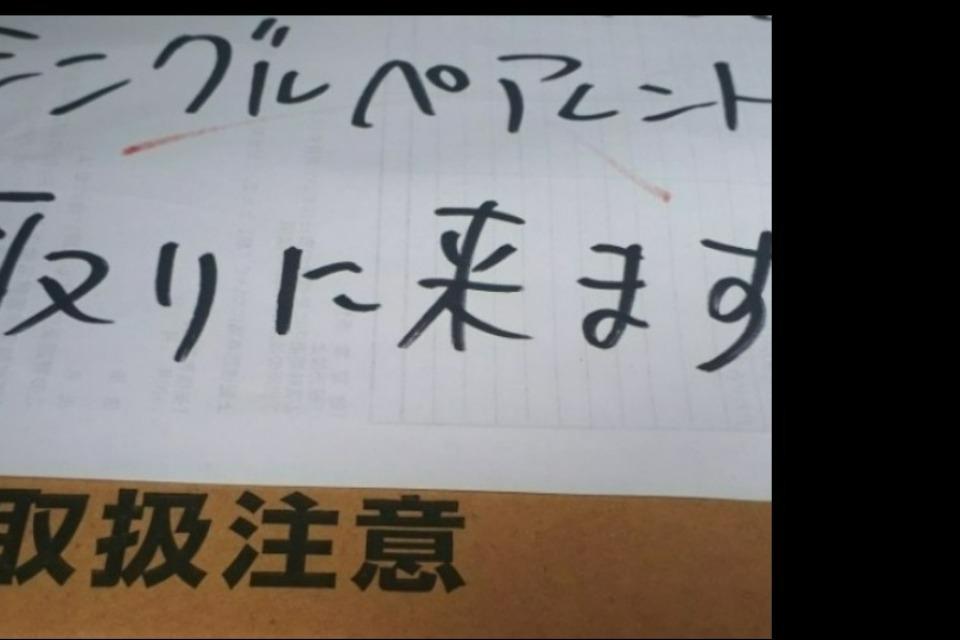 シングルペアレント
取りに来ます
取扱注意